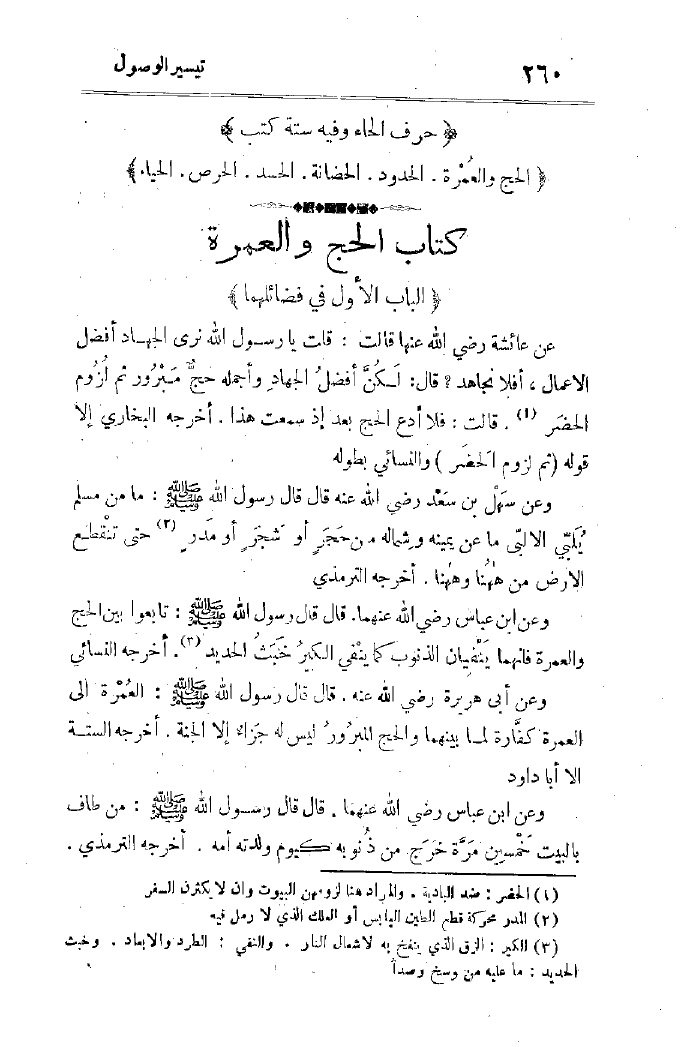 ٢٦٠ تيسير الوصول
﴿ حرف الحاء وفيه ستة كتب ﴾
﴿ الحج والعُمْرة . الحدود . الحضانة . الحسد . الحرص . الحياء ﴾
كتاب الحج والعمرة
﴿ الباب الأول في فضائلهما ﴾
عن عائشة رضي الله عنها قالت : قلت يا رسول الله نرى الجهاد أفضل
الاعمال ، أفلا نجاهد ? قال : لَكُنَّ أفضلُ الجهادِ وأجمله حجٌّ مَبْرُور ثم لُزُوم
الحضَر (١) . قالت : فلا أدع الحج بعد إذ سمعت هذا . أخرجه البخاري إلا
قوله (ثم لزوم الحَضَر ) والنسائي بطوله
وعن سَهْل بن سَعْد رضي الله عنه قال قال رسول الله ﷺ : ما من مسلم
يُلَبِّي الا لبّى ما عن يمينه وشماله من حَجَرٍ أو شَجَرٍ أو مَدَرٍ (٢) حتى تَنْقطع
الارض من هٰهُنا وهٰهُنا . أخرجه الترمذي
وعن ابن عباس رضي الله عنهما . قال قال رسول الله ﷺ : تابعوا بين الحج
والعمرة فانهما يَنْفِيان الذنوب كما يَنْفي الكيرُ خَبَثَ الحديد (٣) . أخرجه النسائي
وعن أبى هريرة رضي الله عنه . قال قال رسول الله ﷺ : العُمْرة الى
العمرة كفَّارة لما بينهما والحج المبرُورُ ليس له جَزاءٌ إلا الجنة . أخرجه الستة
الا أبا داود
وعن ابن عباس رضي الله عنهما . قال قال رسول الله ﷺ : من طاف
بالبيت خَمْسين مَرَّة خرَج من ذُنوبه كيوم ولدته أمه . أخرجه الترمذي .
(١) الحضر : ضد البادية . والمراد هنا لزومهن البيوت وان لا يكثرن السفر
(٢) المدر محركة قطع الطين اليابس أو العلك الذي لا رمل فيه
(٣) الكير : الزق الذي ينفخ به لاشعال النار . والنفي : الطرد والابعاد . وخبث
الحديد : ما عليه من وسخ وصدأ